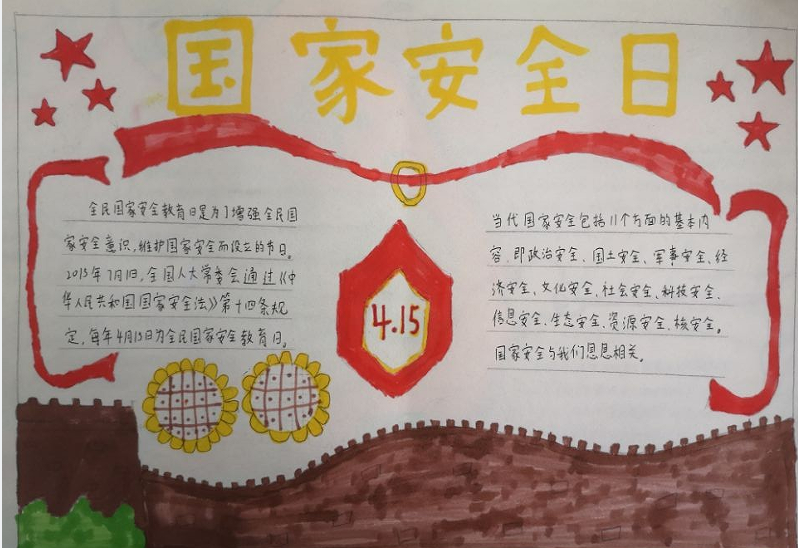 国家安全日
全民国家安全教育日是为了增强全民国
家安全意识，维护国家安全而设立的节日。
2015年7月1日，全国人大常委会通过《中
华人民共和国国家安全法》第十四条规
定，每年4月15日为全民国家安全教育日。
4.15
当代国家安全包括11个方面的基本内
容，即政治安全、国土安全、军事安全、经
济安全、文化安全、社会安全、科技安全、
信息安全、生态安全、资源安全、核安全。
国家安全与我们息息相关。